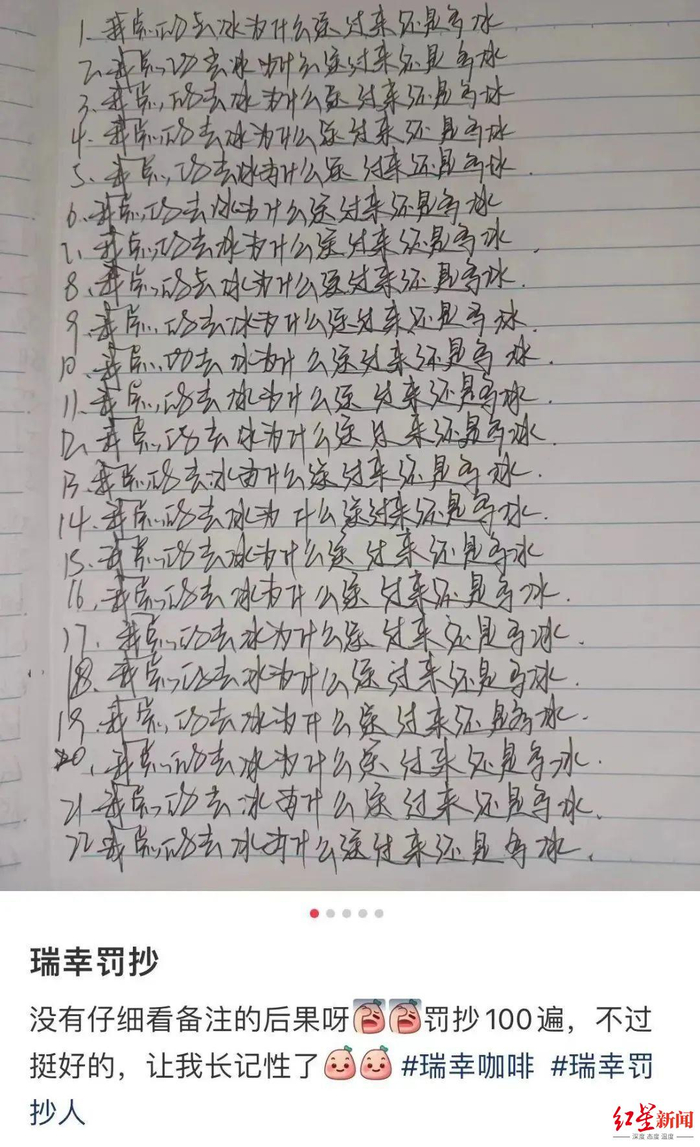 1. 我点的去冰为什么送过来还是多冰
2. 我点的去冰为什么送过来还是多冰
3. 我点的去冰为什么送过来还是多冰
4. 我点的去冰为什么送过来还是多冰
5. 我点的去冰为什么送过来还是多冰.
6. 我点的去冰为什么送过来还是多冰
7. 我点的去冰为什么送过来还是多冰
8. 我点的去冰为什么送过来还是多冰.
9. 我点的去冰为什么送过来还是多冰.
10. 我点的去冰为什么送过来还是多冰.
11. 我点的去冰为什么送过来还是多冰.
12. 我点的去冰为什么送过来还是多冰.
13. 我点的去冰为什么送过来还是多冰.
14. 我点的去冰为什么送过来还是多冰.
15. 我点的去冰为什么送过来还是多冰
16. 我点的去冰为什么送过来还是多冰.
17. 我点的去冰为什么送过来还是多冰.
18. 我点的去冰为什么送过来还是多冰.
19. 我点的去冰为什么送过来还是多冰.
20. 我点的去冰为什么送过来还是多冰.
21 我点的去冰为什么送过来还是多冰.
22 我点的去冰为什么送过来还是多冰.
瑞幸罚抄
没有仔细看备注的后果呀罚抄100遍，不过
挺好的，让我长记性了 #瑞幸咖啡 #瑞幸罚
抄人
红星新闻
深度 态度 温度